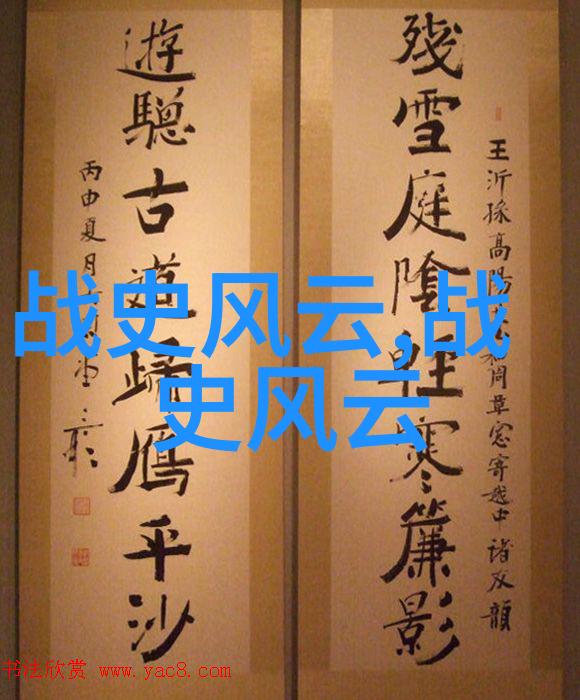 殘雪庭陰輕寒簾影
王沂孫高陽和周草窓寄越中諸友韻
遊驄古道歸鴈平沙
丙申夏月
战史风云,战
史风云
书法欣赏 www.yac8.com